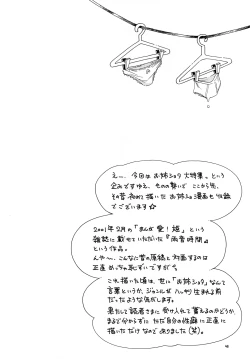 えー、今回は お姉ショタ 大特集 という
企みですゆえ、その勢いで ここから先、
その昔 初めて描いた お姉ショタ漫画も 収録
でございます☆
2001年 2月の「まんが 愛!姫」という
雑誌に 載せていただいた 『雨音時間』
という作品。
んやー、こんなに昔の原稿と 対面するのは
正直 めっちゃ恥ずいですが〜。
これ描いた頃は、世に「お姉ショタ」なんて
言葉というか、ジャンルが ハッキリ生まれる前
だったような気がします。
果たして読者さまに 受け入れて貰えるのかどうか
まるで分からずに ただ自分の性癖に 正直に
描いただけ なのでありました(笑)。